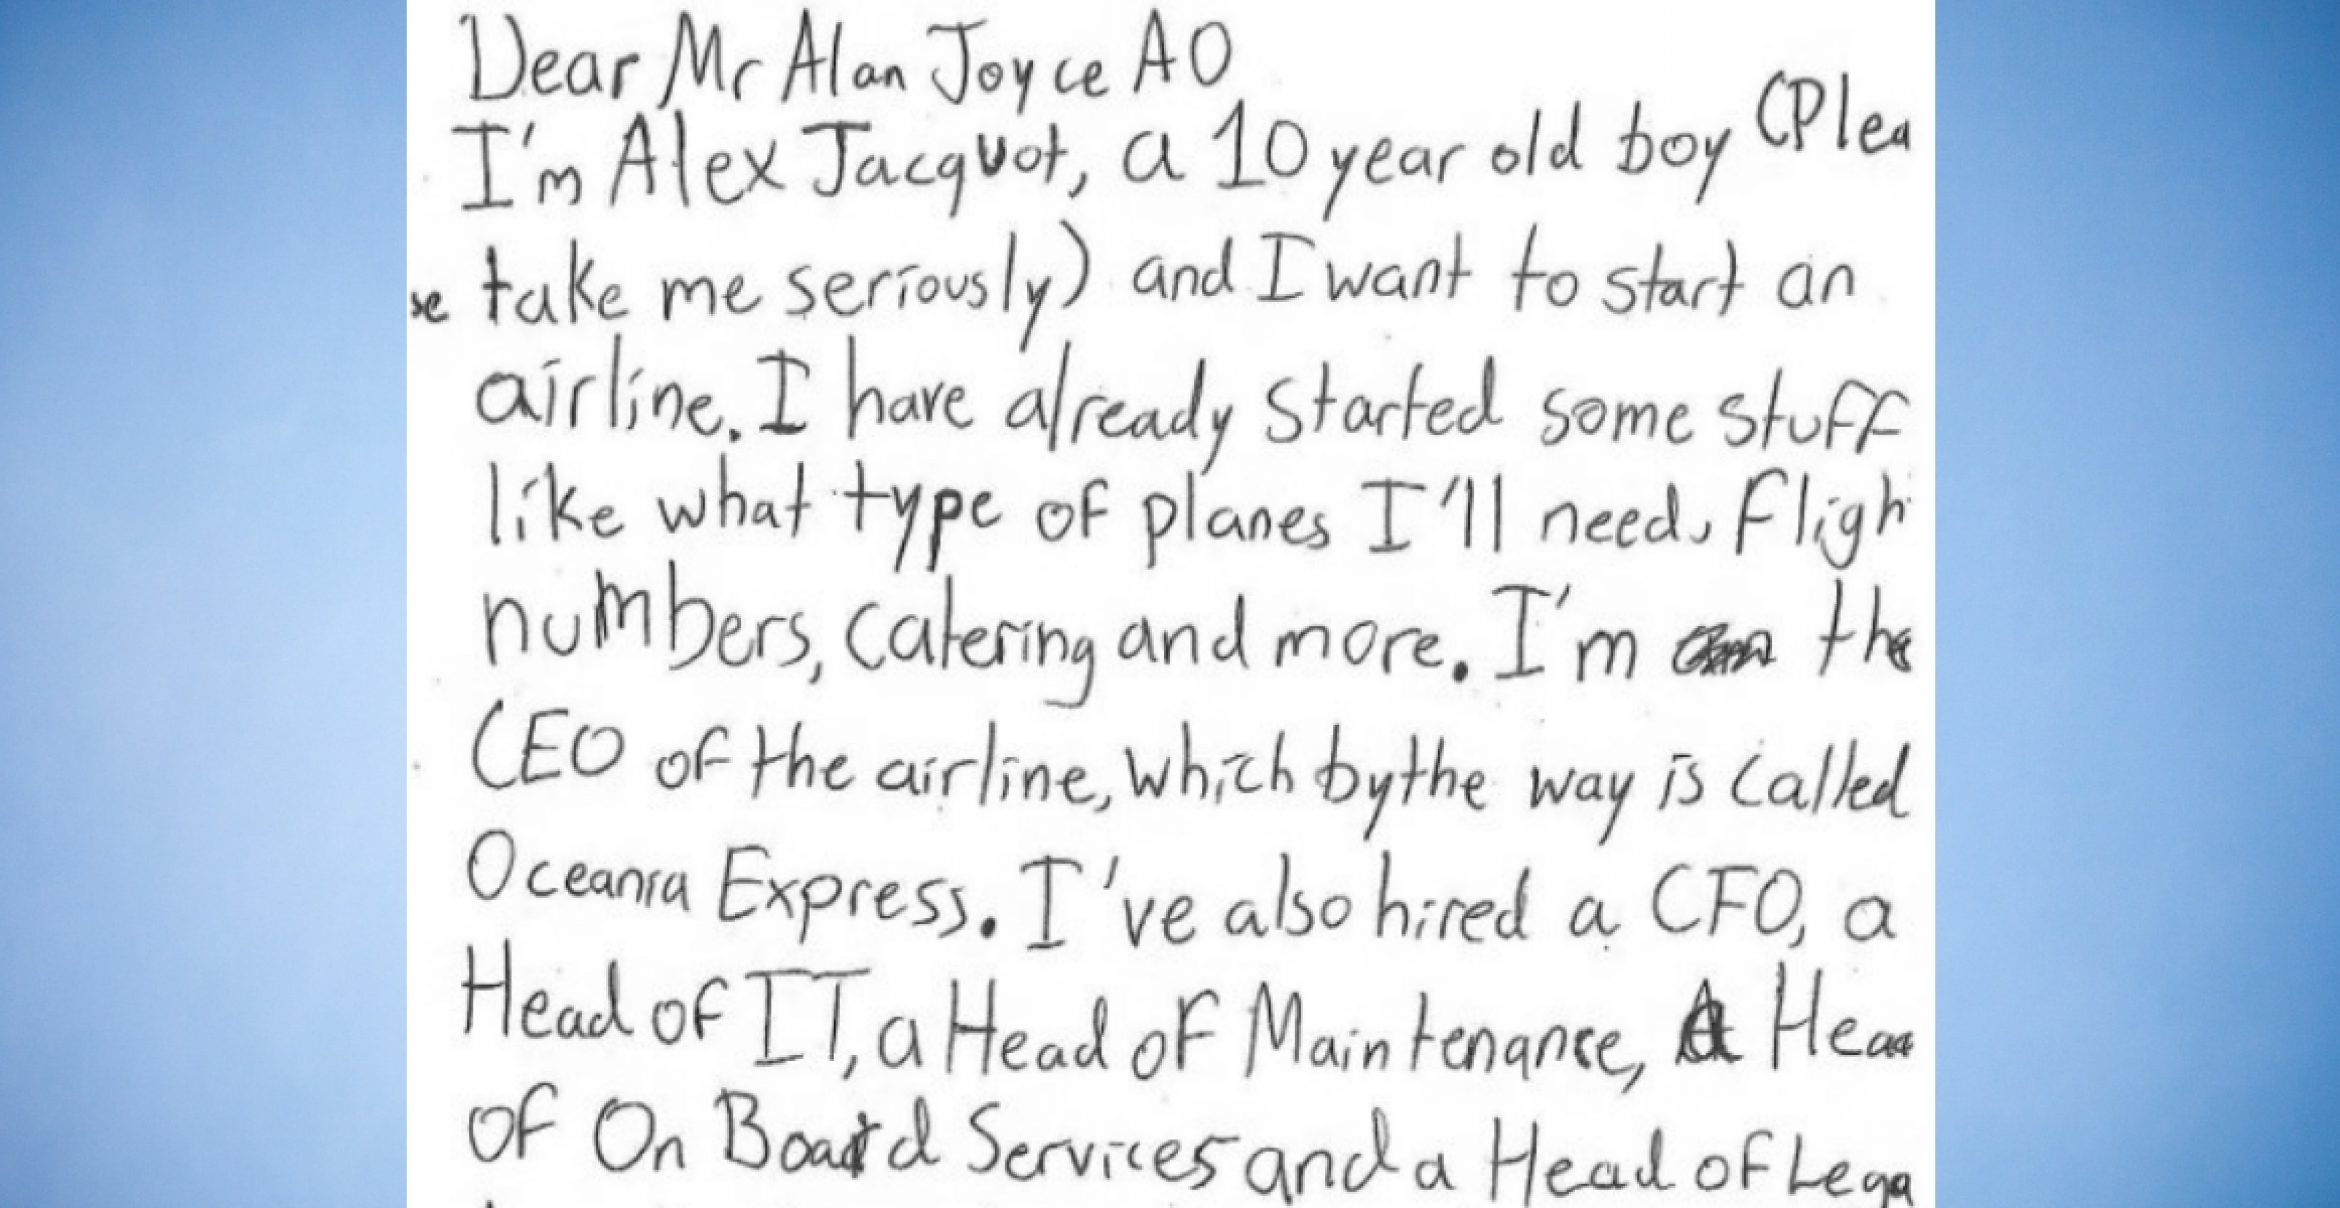 Dear Mr Alan Joyce AO
I'm Alex Jacquot, a 10 year old boy (Plea
se take me seriously) and I want to start an
airline. I have already started some stuff
like what type of planes I'll need, fligh
numbers, catering and more. I'm the
CEO of the airline, which by the way is called
Oceania Express. I've also hired a CFO, a
Head of IT, a Head of Maintenance, A Head
of On Board Services and a Head of Lega